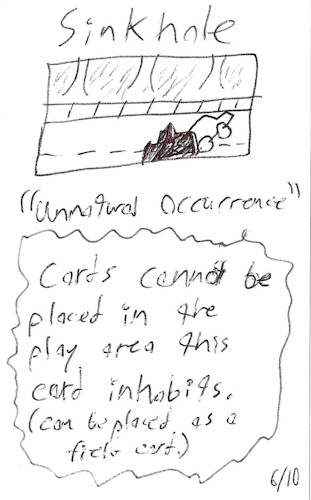 Sinkhole
"Unnatural Occurrence"
Cards cannot be
placed in the
play area this
card inhabits.
(can be placed as a
field card.)
6/10